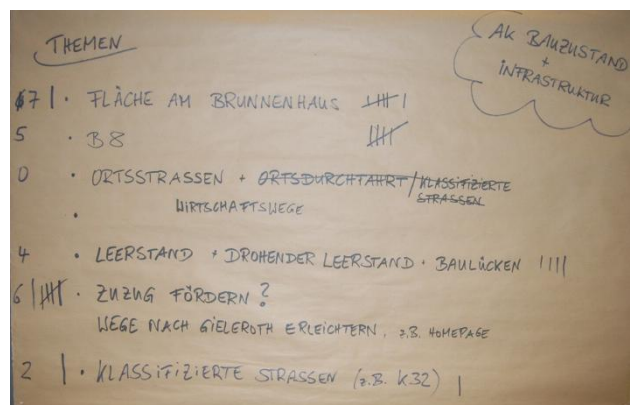 THEMEN
AK BAUZUSTAND
+
INFRASTRUKTUR
7 | · FLÄCHE AM BRUNNENHAUS |||| |
5 · B8 ||||
0 · ORTSSTRASSEN + ORTSDURCHFAHRT / KLASSIFIZIERTE
STRASSEN
· WIRTSCHAFTSWEGE
4 · LEERSTAND + DROHENDER LEERSTAND · BAULÜCKEN ||||
6 | |||| · ZUZUG FÖRDERN?
WEGE NACH GIELEROTH ERLEICHTERN, z.B. HOMEPAGE
2 | · KLASSIFIZIERTE STRASSEN (z.B. K32) |